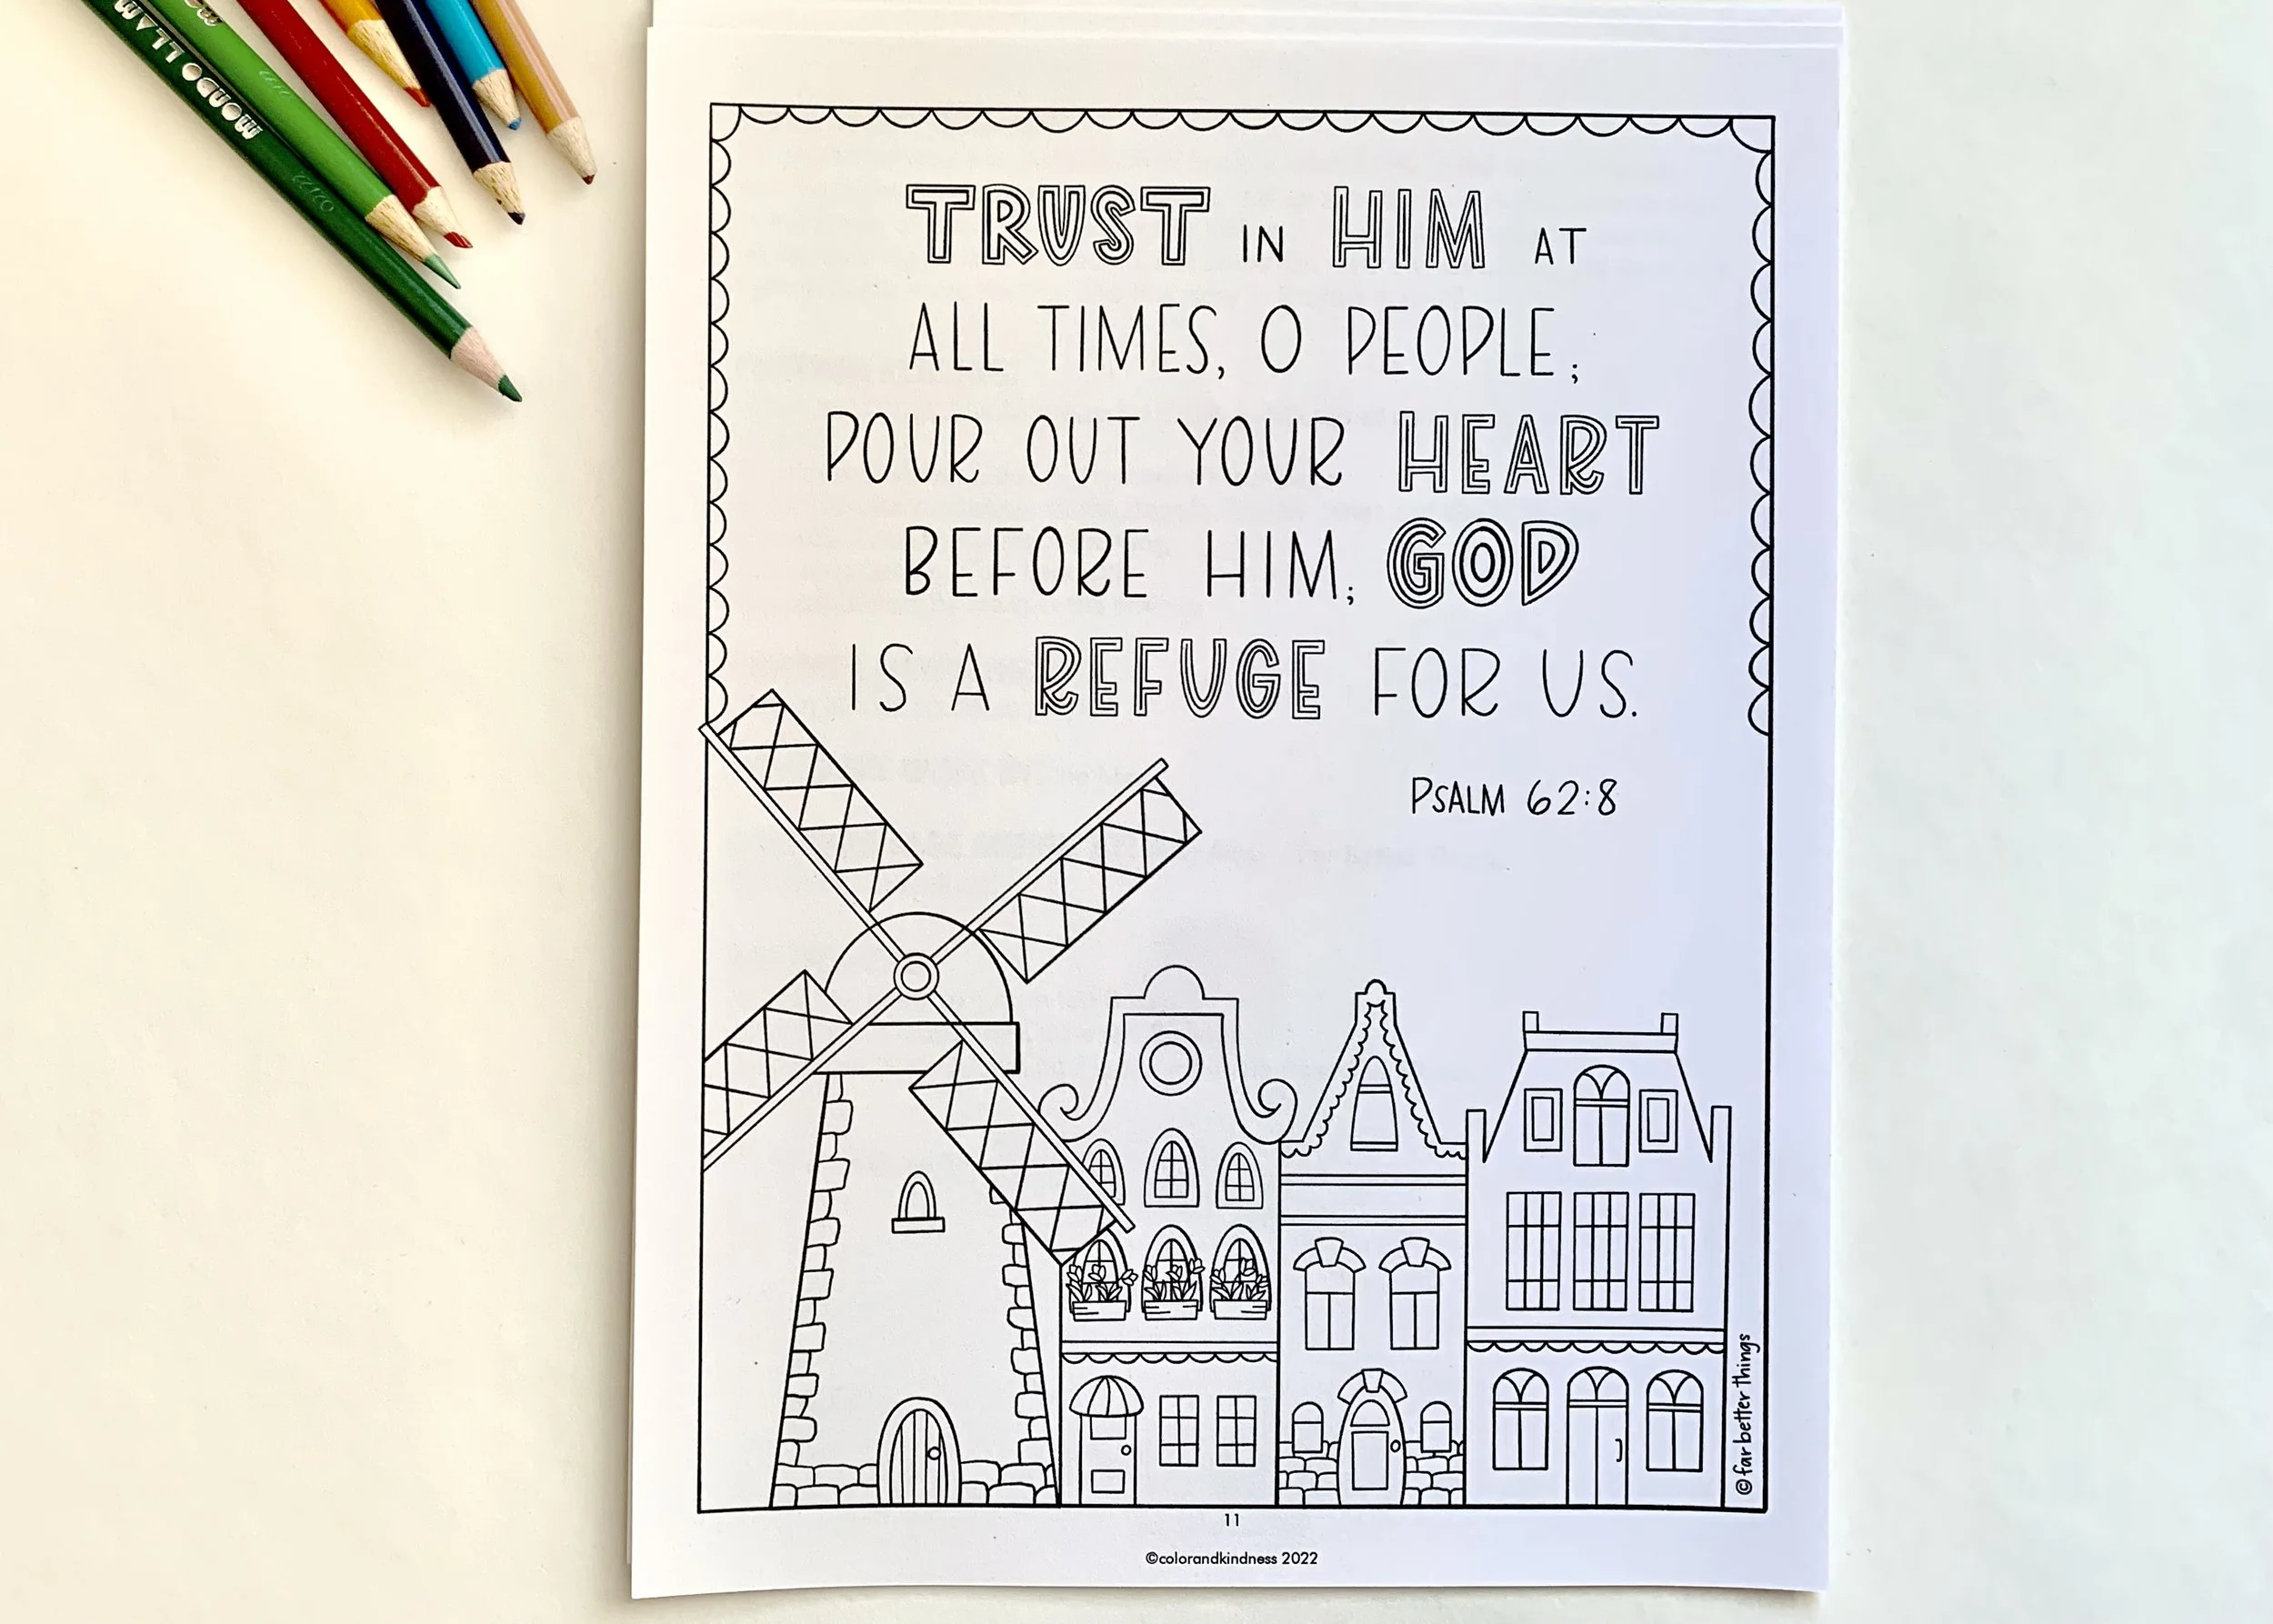 MONDO LLAMA
TRUST IN HIM AT
ALL TIMES, O PEOPLE;
POUR OUT YOUR HEART
BEFORE HIM; GOD
IS A REFUGE FOR US.
PSALM 62:8
©far better things
11
©colorandkindness 2022